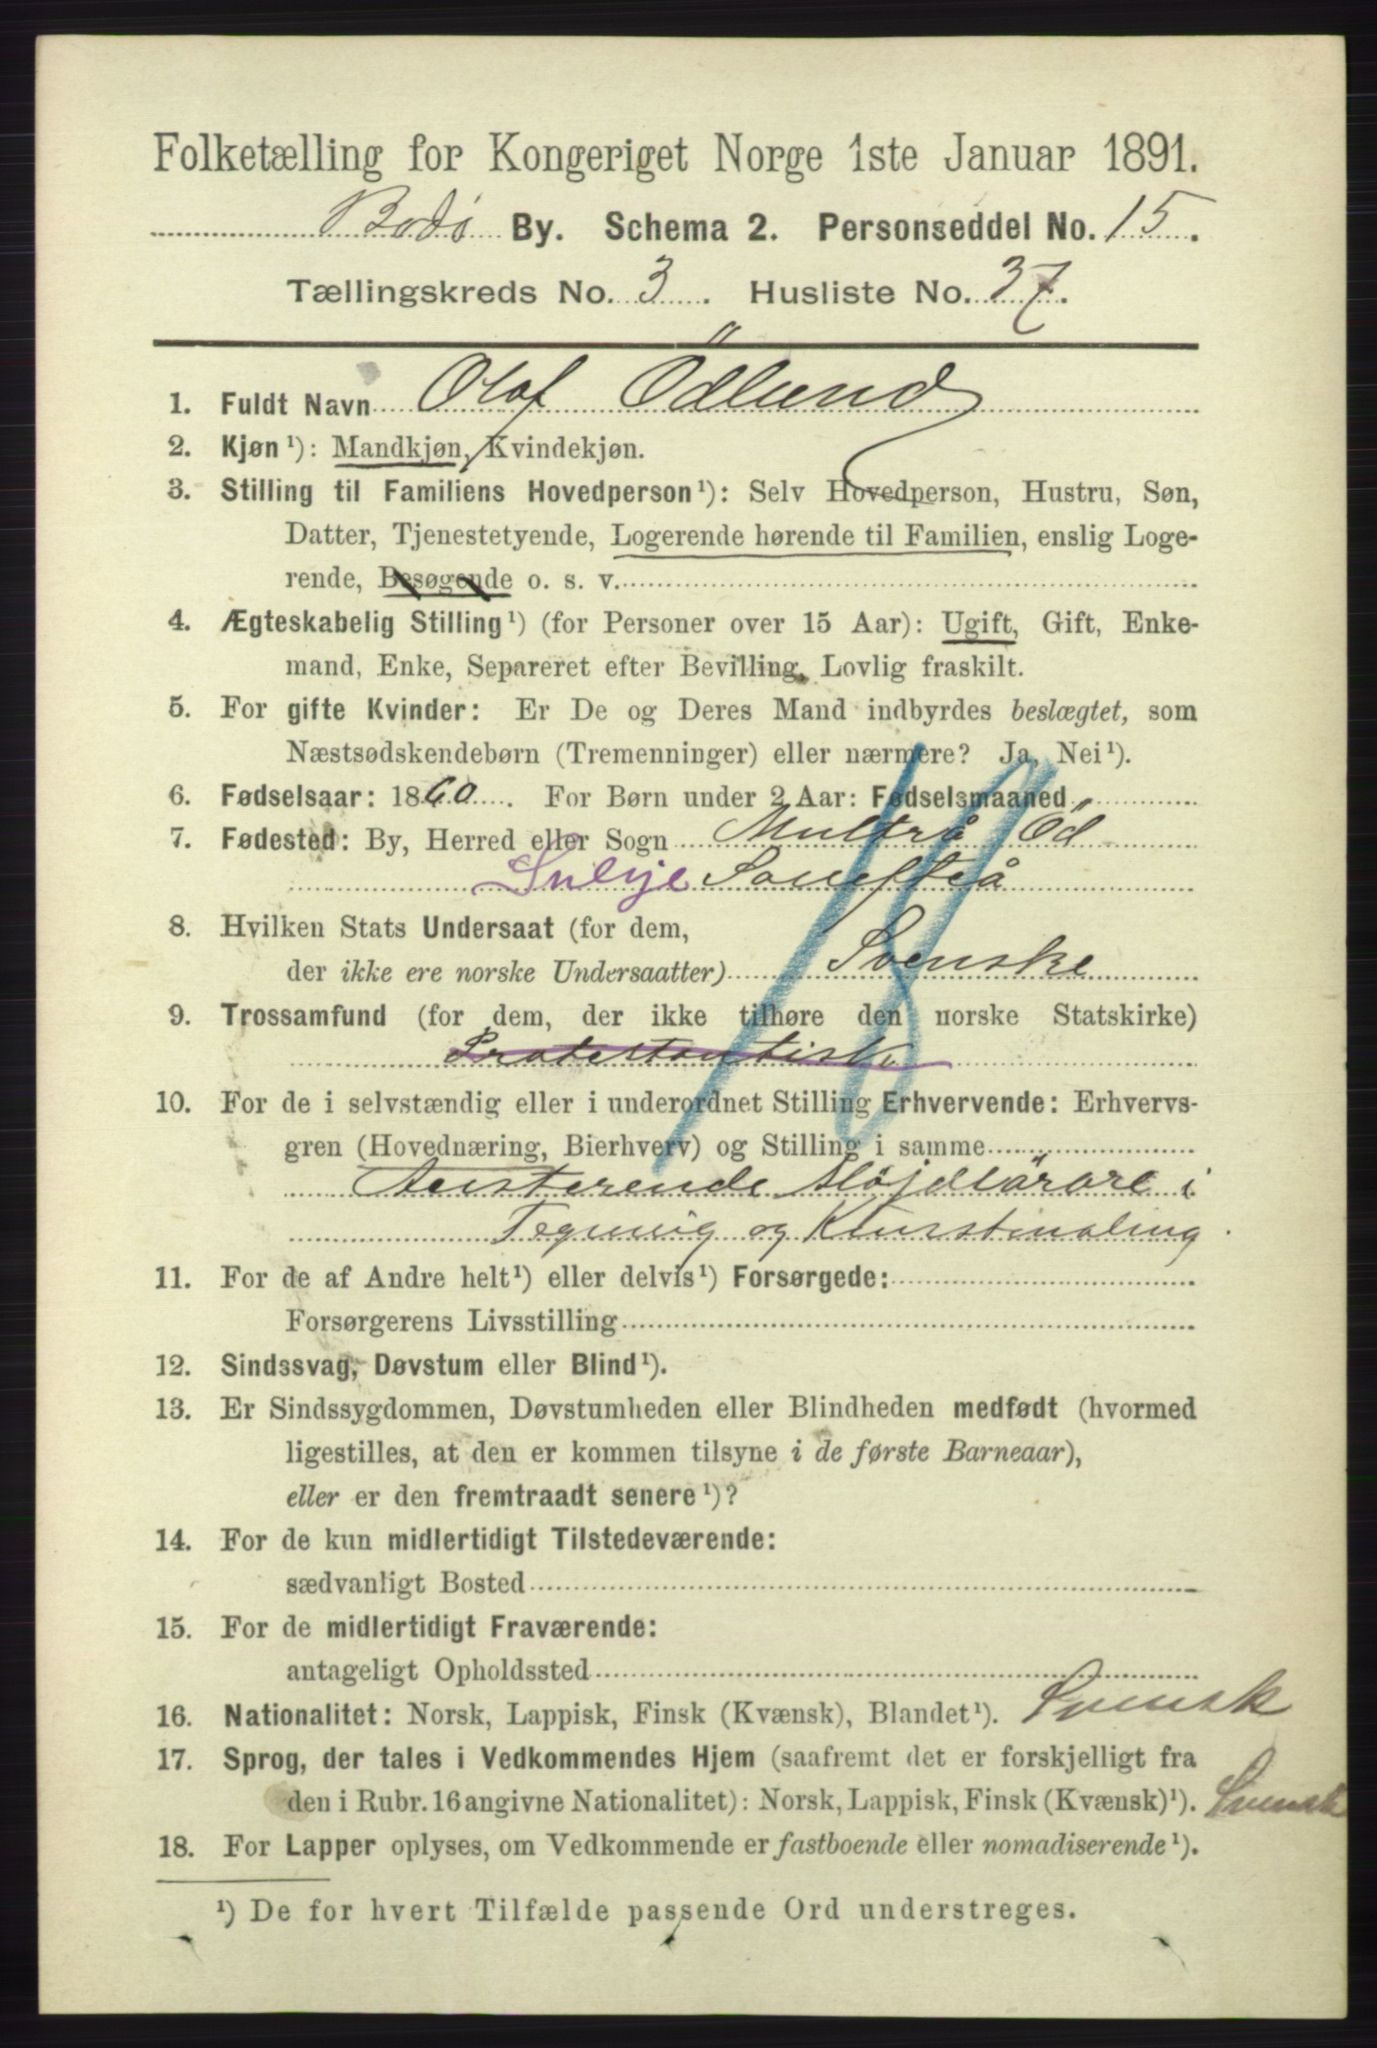 Folketælling for Kongeriget Norge 1ste Januar 1891.
Bodø By. Schema 2. Personseddel No. 15.
Tællingskreds No. 3. Husliste No. 37.
1. Fuldt Navn Olof Ödlund
2. Kjøn ¹): Mandkjøn, Kvindekjøn.
3. Stilling til Familiens Hovedperson ¹): Selv Hovedperson, Hustru, Søn,
Datter, Tjenestetyende, Logerende hørende til Familien, enslig Loge-
rende, Besøgende o. s. v.
4. Ægteskabelig Stilling ¹) (for Personer over 15 Aar): Ugift, Gift, Enke-
mand, Enke, Separeret efter Bevilling, Lovlig fraskilt.
5. For gifte Kvinder: Er De og Deres Mand indbyrdes beslægtet, som
Næstsødskendebørn (Tremenninger) eller nærmere? Ja, Nei ¹).
6. Fødselsaar: 1860. For Børn under 2 Aar: Fødselsmaaned
7. Fødested: By, Herred eller Sogn Multrå Öd
8. Hvilken Stats Undersaat (for dem,
der ikke ere norske Undersaatter) Svenske
9. Trossamfund (for dem, der ikke tilhøre den norske Statskirke)
Protestantisk
10. For de i selvstændig eller i underordnet Stilling Erhvervende: Erhvervs-
gren (Hovednæring, Bierhverv) og Stilling i samme
Slöjdlärare i
Tegning og Kunstmaling
11. For de af Andre helt ¹) eller delvis ¹) Forsørgede:
Forsørgerens Livsstilling
12. Sindssvag, Døvstum eller Blind ¹).
13. Er Sindssygdommen, Døvstumheden eller Blindheden medfødt (hvormed
ligestilles, at den er kommen tilsyne i de første Barneaar),
eller er den fremtraadt senere ¹)?
14. For de kun midlertidigt Tilstedeværende:
sædvanligt Bosted
15. For de midlertidigt Fraværende:
antageligt Opholdssted
16. Nationalitet: Norsk, Lappisk, Finsk (Kvænsk), Blandet ¹). Svensk
17. Sprog, der tales i Vedkommendes Hjem (saafremt det er forskjelligt fra
den i Rubr. 16 angivne Nationalitet): Norsk, Lappisk, Finsk (Kvænsk) ¹). Svensk
18. For Lapper oplyses, om Vedkommende er fastboende eller nomadiserende ¹).
¹) De for hvert Tilfælde passende Ord understreges.